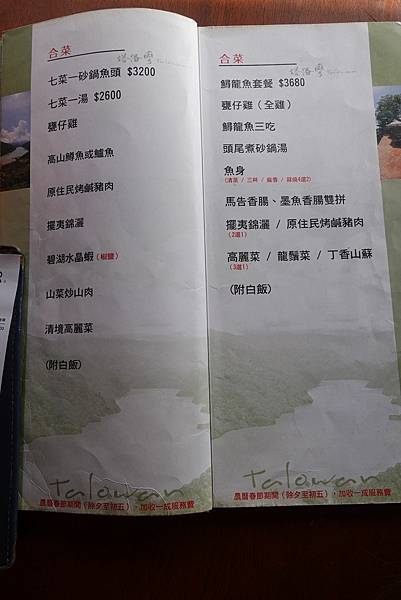 合菜
塔洛彎
七菜一砂鍋魚頭 $3200
七菜一湯 $2600
甕仔雞
高山鱒魚或鱸魚
原住民烤鹹豬肉
擺夷錦灑
碧湖水晶蝦(椒鹽)
山菜炒山肉
清境高麗菜
(附白飯)
Talowan
農曆春節期間(除夕至初五),加收一成服務費
合菜
塔洛彎
鱘龍魚套餐 $3680
甕仔雞(全雞)
鱘龍魚三吃
頭尾煮砂鍋湯
魚身
(清蒸 / 三杯 / 蒜香 / 蒜燒4選2)
馬告香腸、墨魚香腸雙拼
擺夷錦灑 / 原住民烤鹹豬肉
(2選1)
高麗菜 / 龍鬚菜 / 丁香山蘇
(3選1)
(附白飯)
Talowan
農曆春節期間(除夕至初五),加收一成服務費